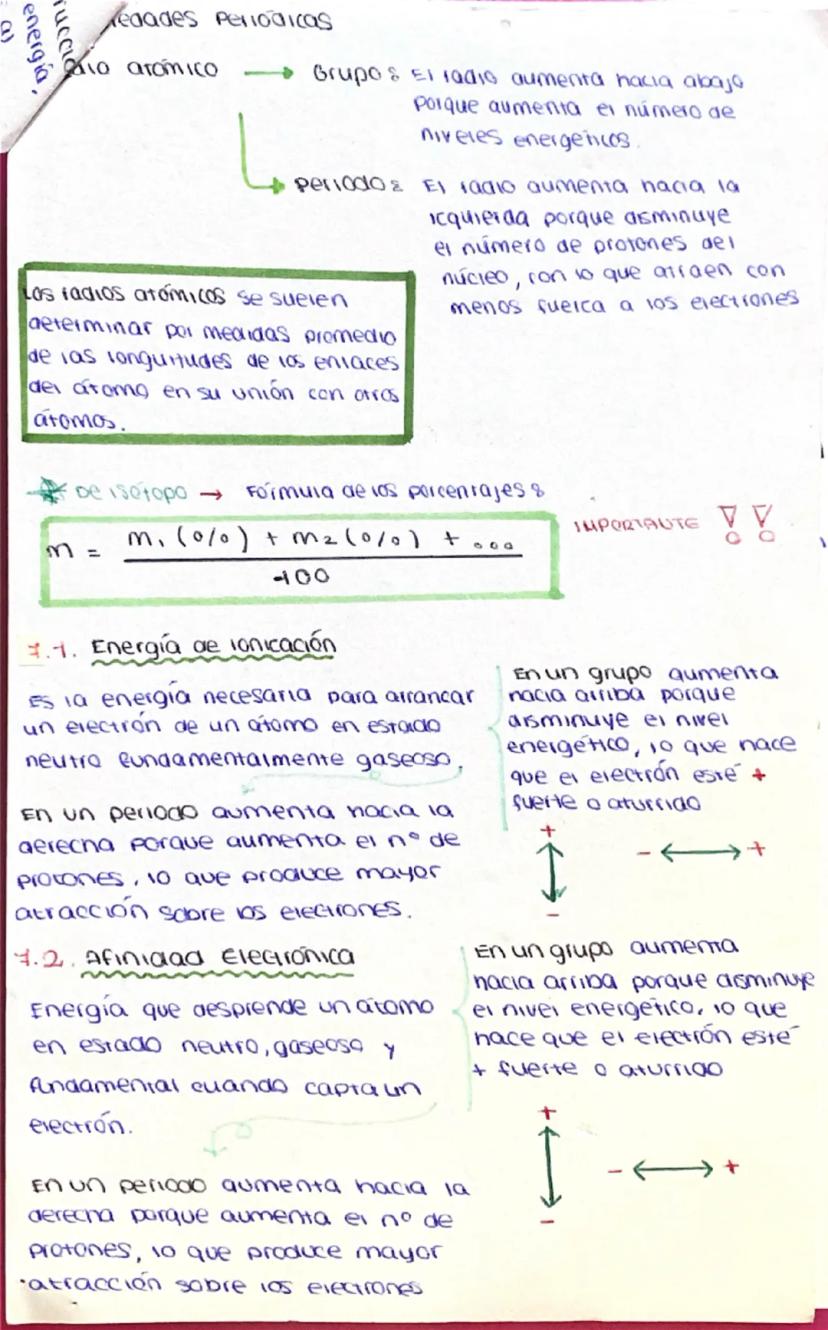 iedades Periódicas
rucció
energía,
a)
dio atómico → Grupo: El radio aumenta hacia abajo
porque aumenta el número de
niveles energéticos.
Periodo: El radio aumenta hacia la
izquierda porque disminuye
el número de protones del
núcleo, con lo que atraen con
menos fuerza a los electrones
Los radios atómicos se suelen
determinar por medidas promedio
de las longuitudes de los enlaces
del átomo en su unión con otros
átomos.
De isótopo → Fórmula de los porcentajes:
m = m₁(%) + m₂(%) + ...
100
IMPORTANTE !!
7.1. Energía de ionización
Es la energía necesaria para arrancar
un electrón de un átomo en estado
neutro fundamentalmente gaseoso.
En un periodo aumenta hacia la
derecha porque aumenta el nº de
protones, lo que produce mayor
atracción sobre los electrones.
En un grupo aumenta
hacia arriba porque
disminuye el nivel
energético, lo que hace
que el electrón esté +
fuerte o aturrido
+
- ↔ +
-
7.2. Afinidad Electrónica
Energía que desprende un átomo
en estado neutro, gaseoso y
fundamental cuando capta un
electrón.
En un periodo aumenta hacia la
derecha porque aumenta el nº de
protones, lo que produce mayor
atracción sobre los electrones
En un grupo aumenta
hacia arriba porque disminuye
el nivel energético, lo que
hace que el electrón esté
+ fuerte o aturrido
+
- ↔ +
-